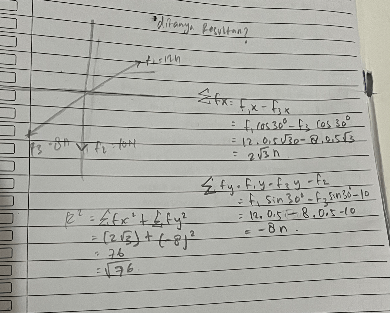 *ditanya Resultan?
f₁=12n
f₃ = 8n
f₂ = 10n
Σfx = f₁x - f₃x
= f₁ cos 30° - f₃ cos 30°
= 12. 0,5√30 - 8. 0,5√3
= 2√3 n
Σfy = f₁y - f₃y - f₂
= f₁ sin 30° - f₃ sin 30° - 10
= 12. 0,5 - 8. 0,5 - 10
= -8n.
R² = Σfx² + Σfy²
= (2√3) + (-8)²
= 76
= √76